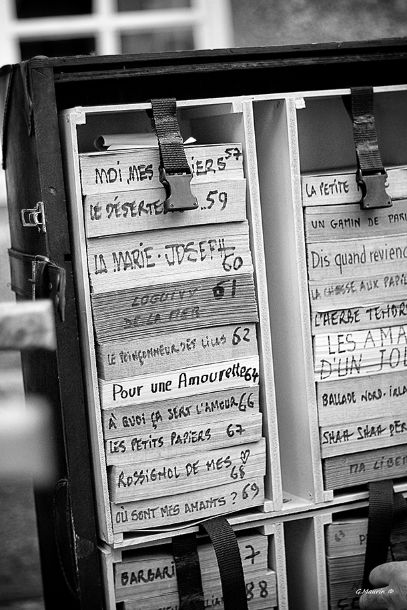 MOI, MES IERS 57
LE DÉSERTE 59
LA MARIE-JOSEPH
60
61
DE LA MER
LE POINÇONNEUR DES LILAS 62
Pour une Amourette 64
À QUOI ÇA SERT L'AMOUR 66
LES PETITS PAPIERS 67
ROSSIGNOL DE MES ♡
68
OÙ SONT MES AMANTS ? 69
BARBAR 7
88
LA PETITE
UN GAMIN DE PAR
Dis quand revien
LA CHASSE AUX PAPIL
L'HERBE TENDR
LES AMA
D'UN JOU
BALLADE NORD-IRLA
SHAH SHAH PER
MA LIBER
G.Maurin ©